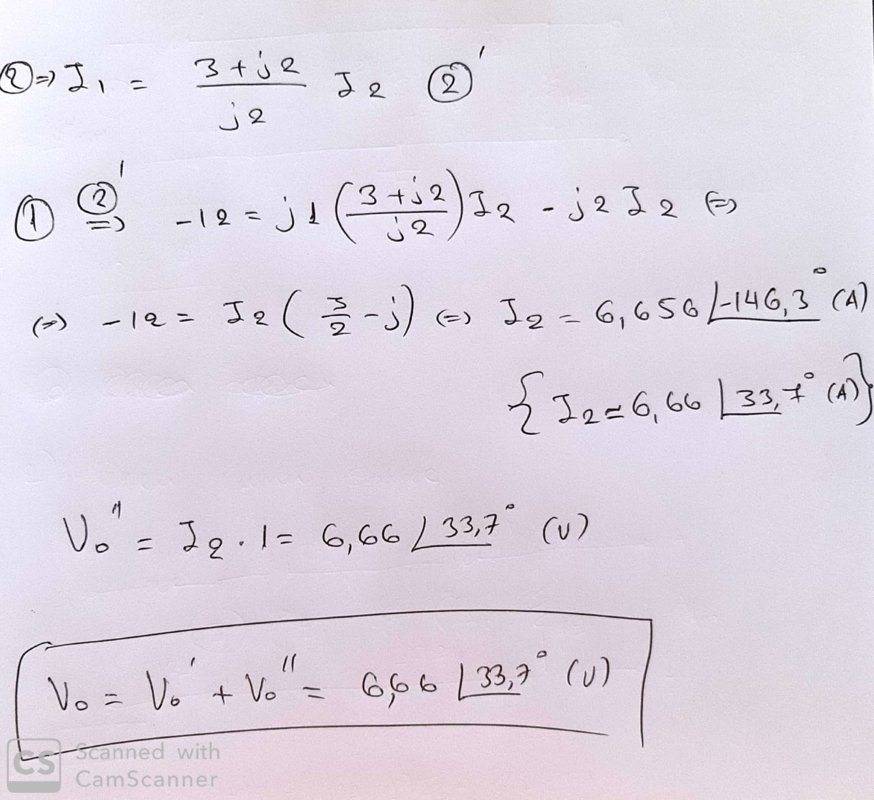 ② ⇒ I₁ = (3+j2)/(j2) I₂ ②'
① ②' ⇒ -12 = j1((3+j2)/(j2))I₂ - j2I₂ ⇔
⇔ -12 = I₂(3/2 - j) ⇔ I₂ = 6,656∠-146,3° (A)
{I₂ = 6,66∠33,7° (A)}
V₀'' = I₂·1 = 6,66∠33,7° (V)
V₀ = V₀' + V₀'' = 6,66∠33,7° (V)
CS Scanned with
CamScanner